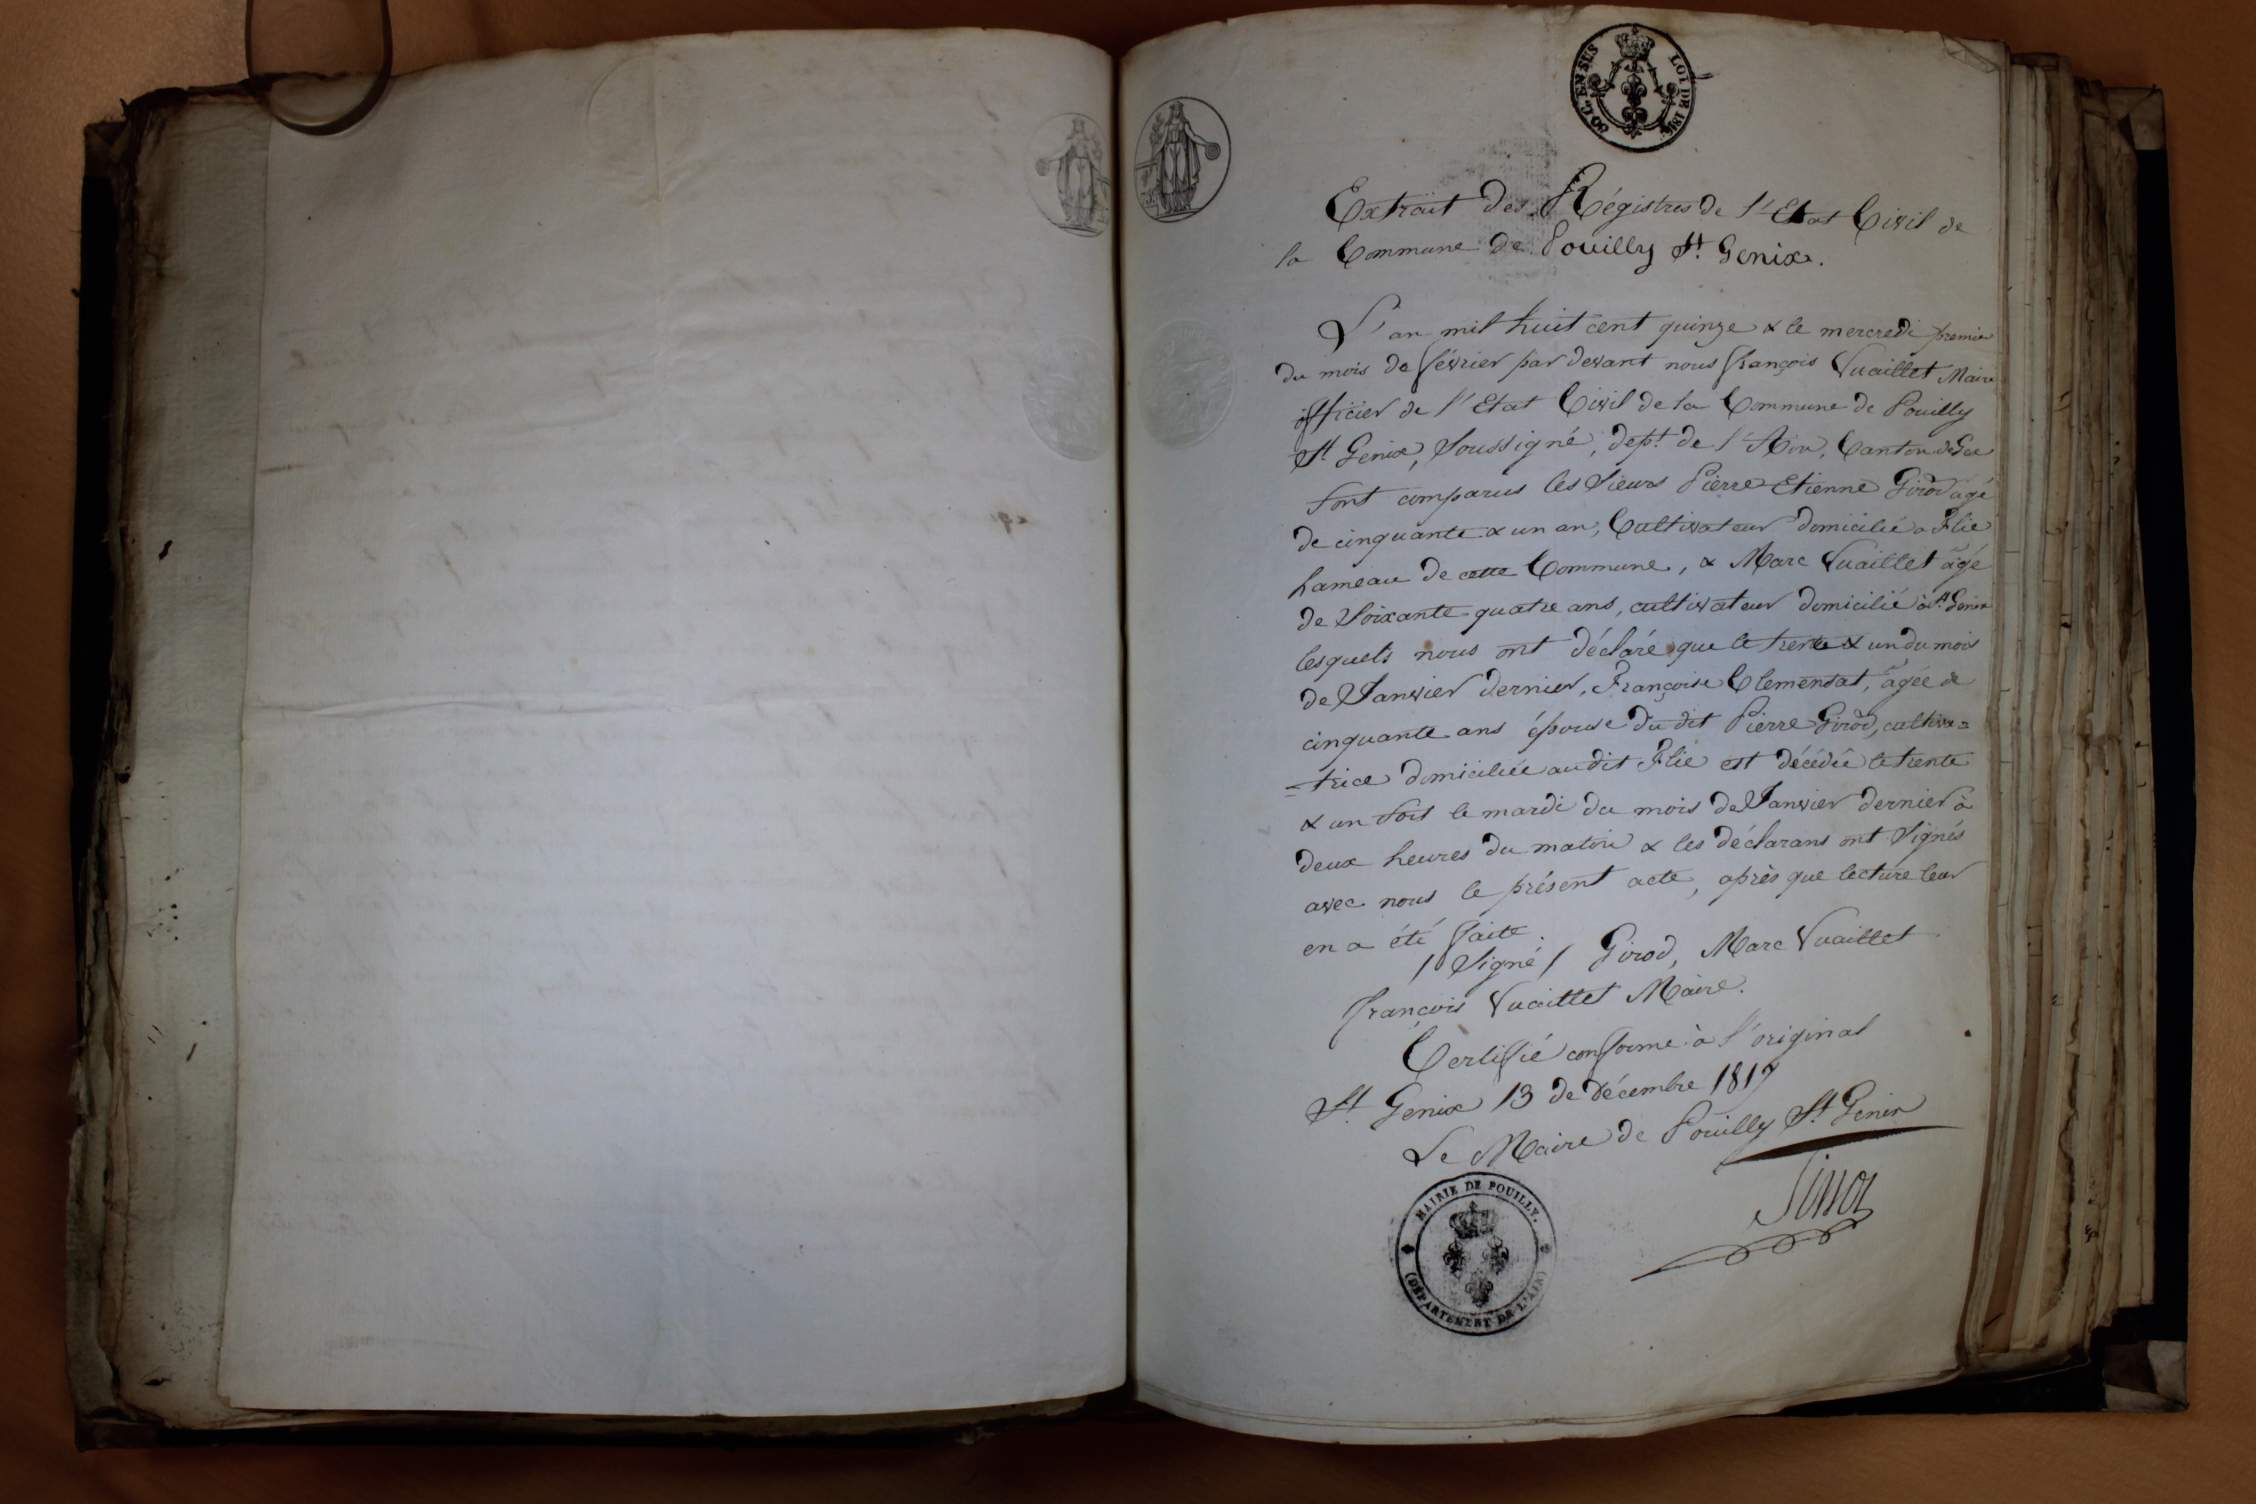 30 C. EN SUS LOI DE
Extrait des Régistres de l'Etat Civil de
la Commune de Pouilly St. Genix.
L'an mil huit cent quinze & le mercredi premier
du mois de février par devant nous françois Vuaillet Maire
officier de l'Etat Civil de la Commune de Pouilly
St Genix, Soussigné, dept. de l'Ain, Canton de Gex
Sont comparus les Sieurs Pierre Etienne Girod âgé
de cinquante & un an, Cultivateur domicilié a Flie
hameau de cette Commune, & Marc Vuaillet âgé
de Soixante quatre ans, cultivateur domicilié à St Genix
lesquels nous ont déclaré que le trente & un du mois
de Janvier dernier, Françoise Clemensat, âgée de
cinquante ans épouse du dit Pierre Girod, cultiva=
=trice domiciliée au dit Flie est décédée le trente
& un Soit le mardi du mois de Janvier dernier à
deux heures du matin & les déclarans ont Signés
avec nous le présent acte, après que lecture leur
en a été faite.
/ Signé / Girod, Marc Vuaillet
françois Vuaillet Maire.
Certifié conforme à l'original
St. Genix 13 de décembre 1817
Le Maire de Pouilly St Genix
MAIRIE DE POUILLY.
(DÉPARTEMENT DE L'AIN)